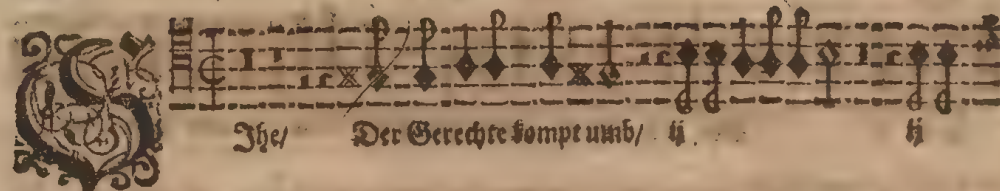 SIhe/ Der Gerechte kompt umb/ ij ij